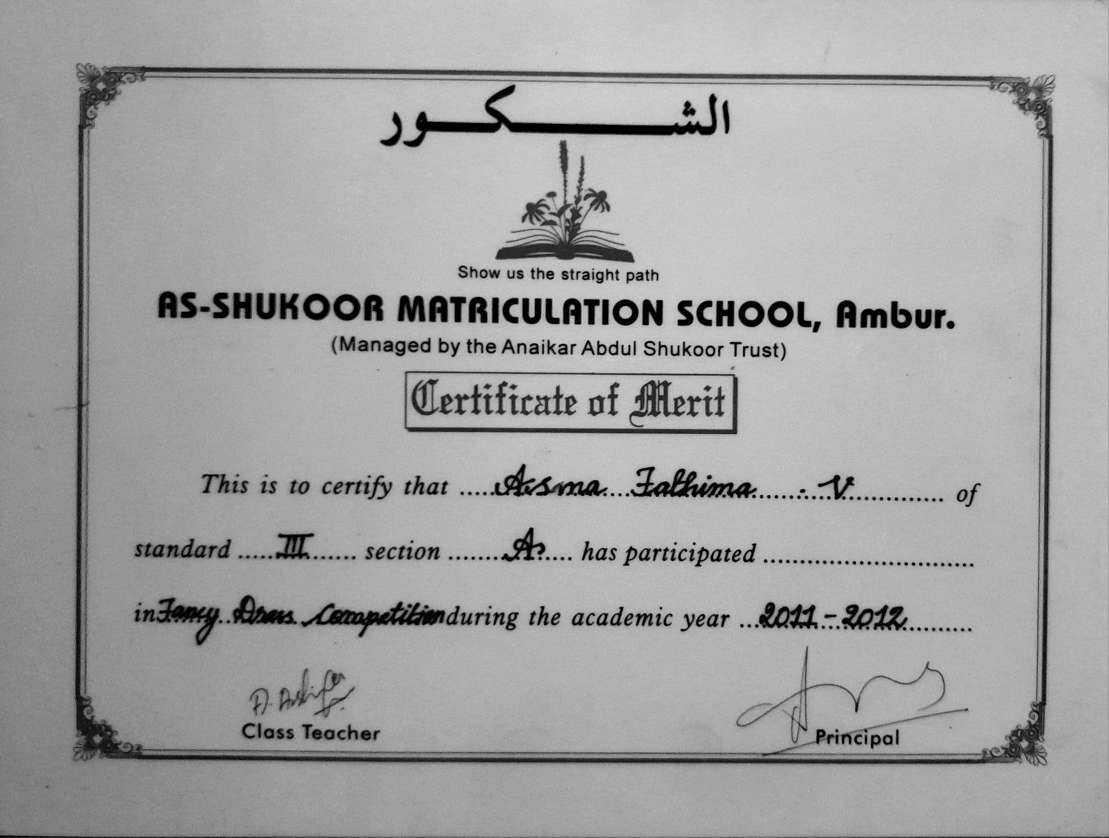 الشكور
Show us the straight path
AS-SHUKOOR MATRICULATION SCHOOL, Ambur.
(Managed by the Anaikar Abdul Shukoor Trust)
Certificate of Merit
This is to certify that .....Assma....Fathima.......V............... of
standard .....III...... section ........A.... has participated ..............................
in Fancy Dress Competition during the academic year ...2011-2012.........
Class Teacher
Principal